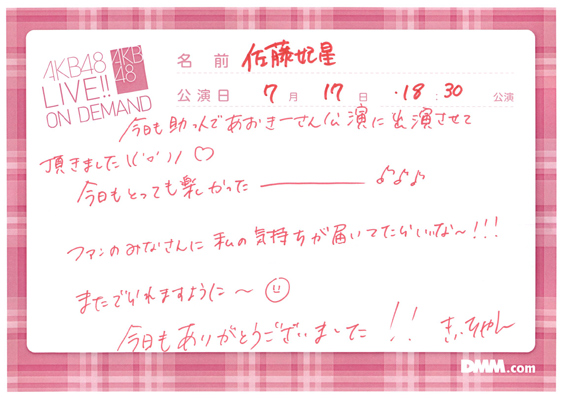 AKB48
LIVE!!
ON DEMAND
AKB
48
名前 佐藤妃星
公演日 7月 17日 18:30 公演
今日も助っ人であおきーさん公演に出演させて
頂きました\('o')/ ♡
今日もとっても楽しかった ――― ♪♪♪
ファンのみなさんに 私の気持ちが届いてたらいいな〜!!!
またでられますように〜
今日もありがとうございました!! きぃちゃん
DMM.com